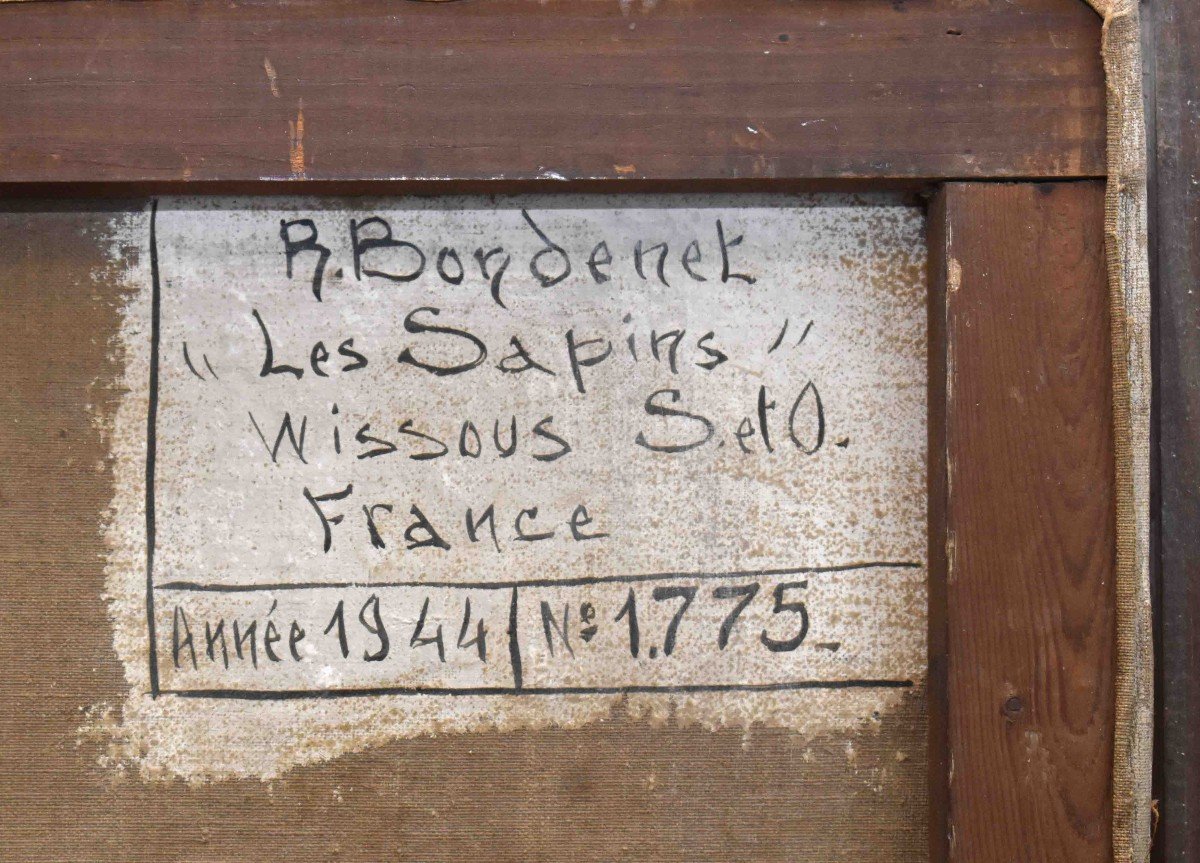 R. Bordenet
"Les Sapins"
Wissous S. et O.
France
Année 1944 Nº 1.775_